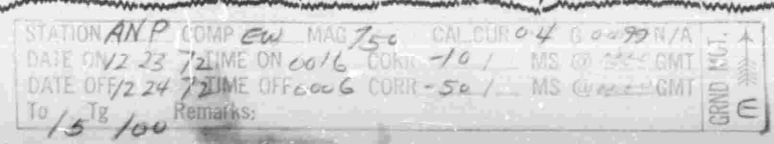 STATION ANP COMP EW MAG 750 CAL CUR 0.4 G 0.0099 N/A
DATE ON 12 23 72 TIME ON 0016 CORR -10 / MS @ GMT
DATE OFF 12 24 72 TIME OFF 0006 CORR -50 / MS @ GMT
To 15 Tg 100 Remarks:
GRND MGT.
E